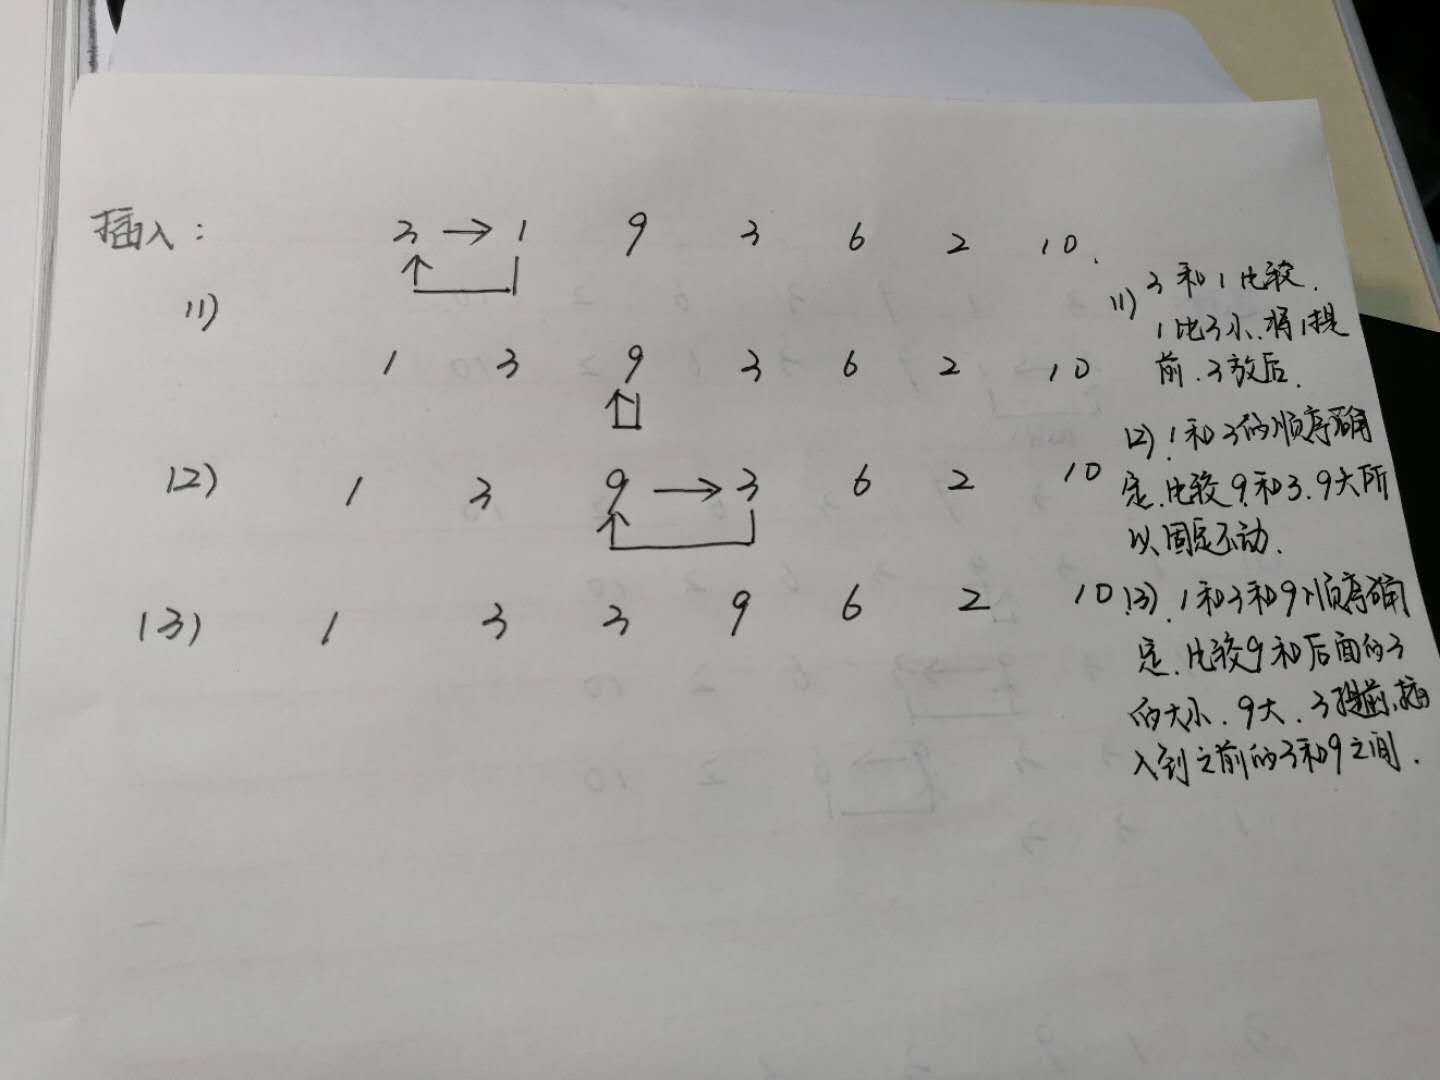 插入： 3 → 1 9 3 6 2 10.
(1)
1 3 9 3 6 2 10
(2) 1 3 9 → 3 6 2 10
(3) 1 3 3 9 6 2 10
(1) 3和1比较.
1比3小.将1提
前.3放后.
(2) 1和3的顺序确
定.比较9和3.9大所
以固定不动.
(3).1和3和9顺序确
定.比较9和后面的3
的大小.9大.3提前.插
入到之前的3和9之间.